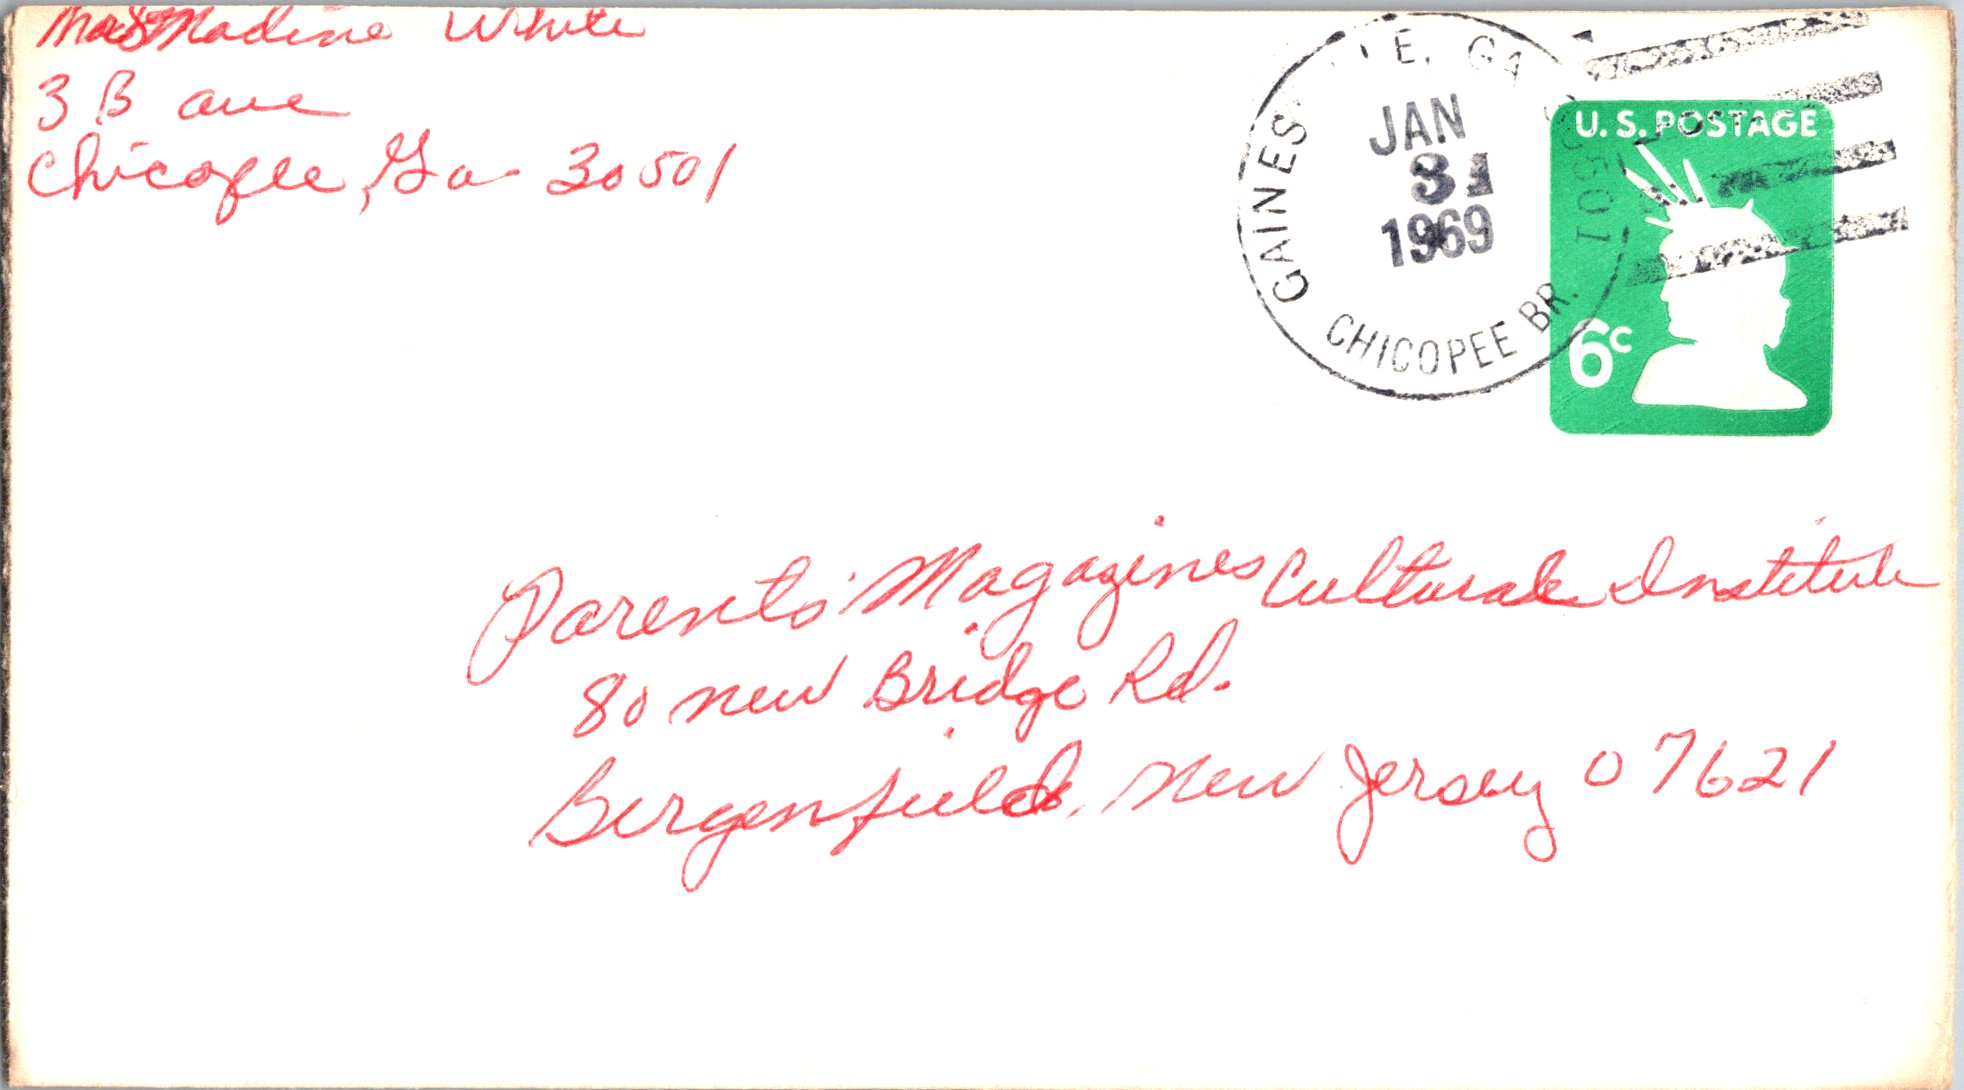 Mrs Madine White
3 B ave
Chicopee, Ga 30501
GAINES E, GA
30501
CHICOPEE BR.
JAN
31
1969
U. S. POSTAGE
6c
Parents' Magazines Cultural Institute
80 new Bridge Rd.
Bergenfield, New Jersey 07621